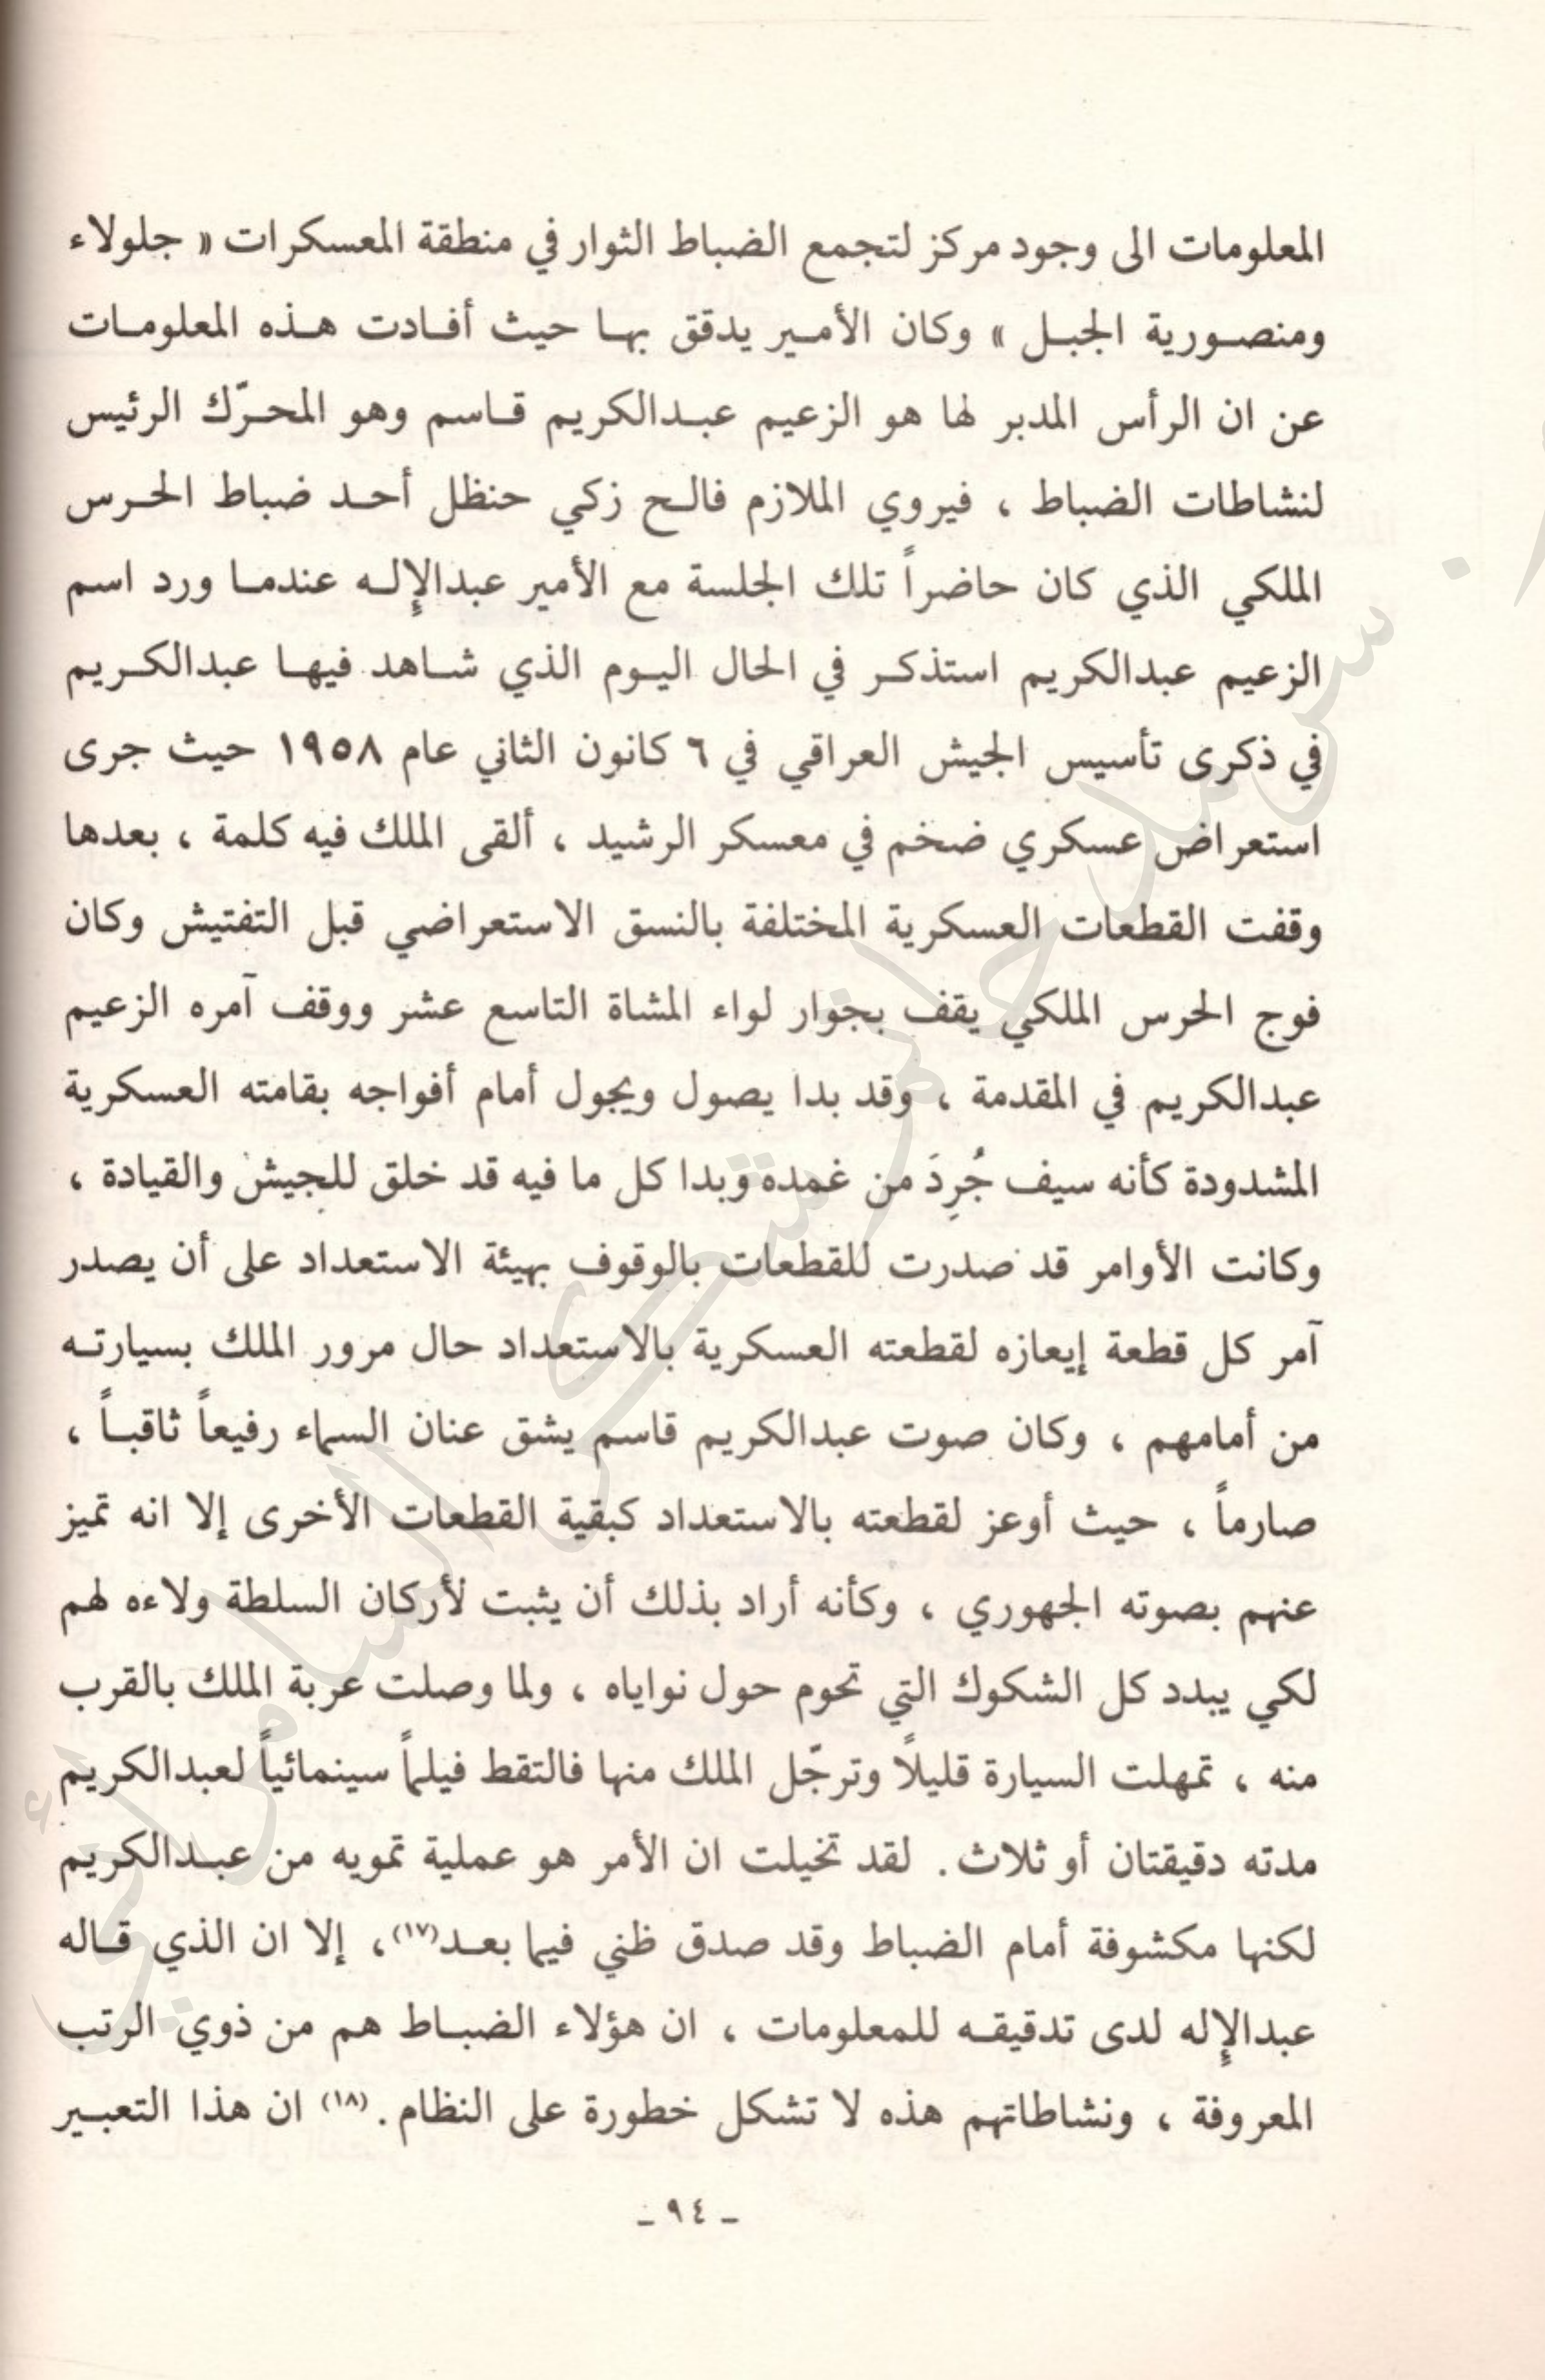 المعلومات الى وجود مركز لتجمع الضباط الثوار في منطقة المعسكرات « جلولاء
ومنصورية الجبل » وكان الأمير يدقق بها حيث أفادت هذه المعلومات
عن ان الرأس المدبر لها هو الزعيم عبدالكريم قاسم وهو المحرّك الرئيس
لنشاطات الضباط ، فيروي الملازم فالح زكي حنظل أحد ضباط الحرس
الملكي الذي كان حاضراً تلك الجلسة مع الأمير عبدالإِله عندما ورد اسم
الزعيم عبدالكريم استذكر في الحال اليوم الذي شاهد فيها عبدالكريم
في ذكرى تأسيس الجيش العراقي في ٦ كانون الثاني عام ١٩٥٨ حيث جرى
استعراض عسكري ضخم في معسكر الرشيد ، ألقى الملك فيه كلمة ، بعدها
وقفت القطعات العسكرية المختلفة بالنسق الاستعراضي قبل التفتيش وكان
فوج الحرس الملكي يقف بجوار لواء المشاة التاسع عشر ووقف آمره الزعيم
عبدالكريم في المقدمة ، وقد بدا يصول ويجول أمام أفواجه بقامته العسكرية
المشدودة كأنه سيف جُرِدَ من غمده وبدا كل ما فيه قد خلق للجيش والقيادة ،
وكانت الأوامر قد صدرت للقطعات بالوقوف بهيئة الاستعداد على أن يصدر
آمر كل قطعة إيعازه لقطعته العسكرية بالاستعداد حال مرور الملك بسيارته
من أمامهم ، وكان صوت عبدالكريم قاسم يشق عنان السماء رفيعاً ثاقباً ،
صارماً ، حيث أوعز لقطعته بالاستعداد كبقية القطعات الأخرى إلا انه تميز
عنهم بصوته الجهوري ، وكأنه أراد بذلك أن يثبت لأركان السلطة ولاءه لهم
لكي يبدد كل الشكوك التي تحوم حول نواياه ، ولما وصلت عربة الملك بالقرب
منه ، تمهلت السيارة قليلاً وترجّل الملك منها فالتقط فيلماً سينمائياً لعبدالكريم
مدته دقيقتان أو ثلاث . لقد تخيلت ان الأمر هو عملية تمويه من عبدالكريم
لكنها مكشوفة أمام الضباط وقد صدق ظني فيما بعد(١٧)، إلا ان الذي قاله
عبدالإِله لدى تدقيقه للمعلومات ، ان هؤلاء الضباط هم من ذوي الرتب
المعروفة ، ونشاطاتهم هذه لا تشكل خطورة على النظام .(١٨) ان هذا التعبير
ـ ٩٤ ـ